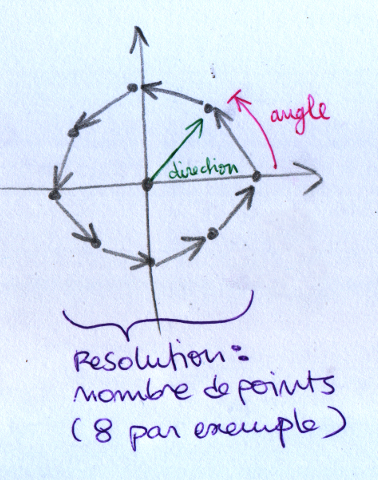 angle
direction
Resolution:
nombre de points
(8 par exemple)